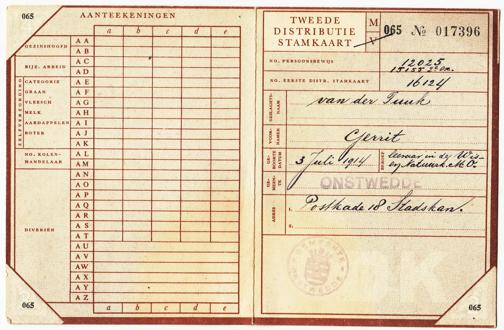 065
AANTEEKENINGEN
a b c d e
GEZINSHOOFD
AA
AB
BIJZ. ARBEID
AC
AD
ZELFVERZORGING
CATEGORIE
AE
GRAAN
AF
VLEESCH
AG
MELK
AH
AARDAPPELEN
AI
BOTER
AJ
AK
NO. KOLEN-
HANDELAAR
AL
AM
AN
AO
AP
AQ
DIVERSEN
AR
AS
AT
AU
AV
AW
AX
AY
AZ
a b c d e
065
TWEEDE
DISTRIBUTIE
STAMKAART
M
V
065 No 017396
NO. PERSOONSBEWIJS
12025
NO. EERSTE DISTR. STAMKAART
16124
GESLACHTS-
NAAM
van der Tuuk
VOOR-
NAMEN
Gerrit
GE-
BOORTE
DATUM
3 Juli 1914
BEROEP
leeraar in de Wis-
en Natuurk. M.O.
GE-
MEEN-
TE
ONSTWEDDE
ADRES
1. Postkade 18 Stadskan.
2.
GEMEENTE
065